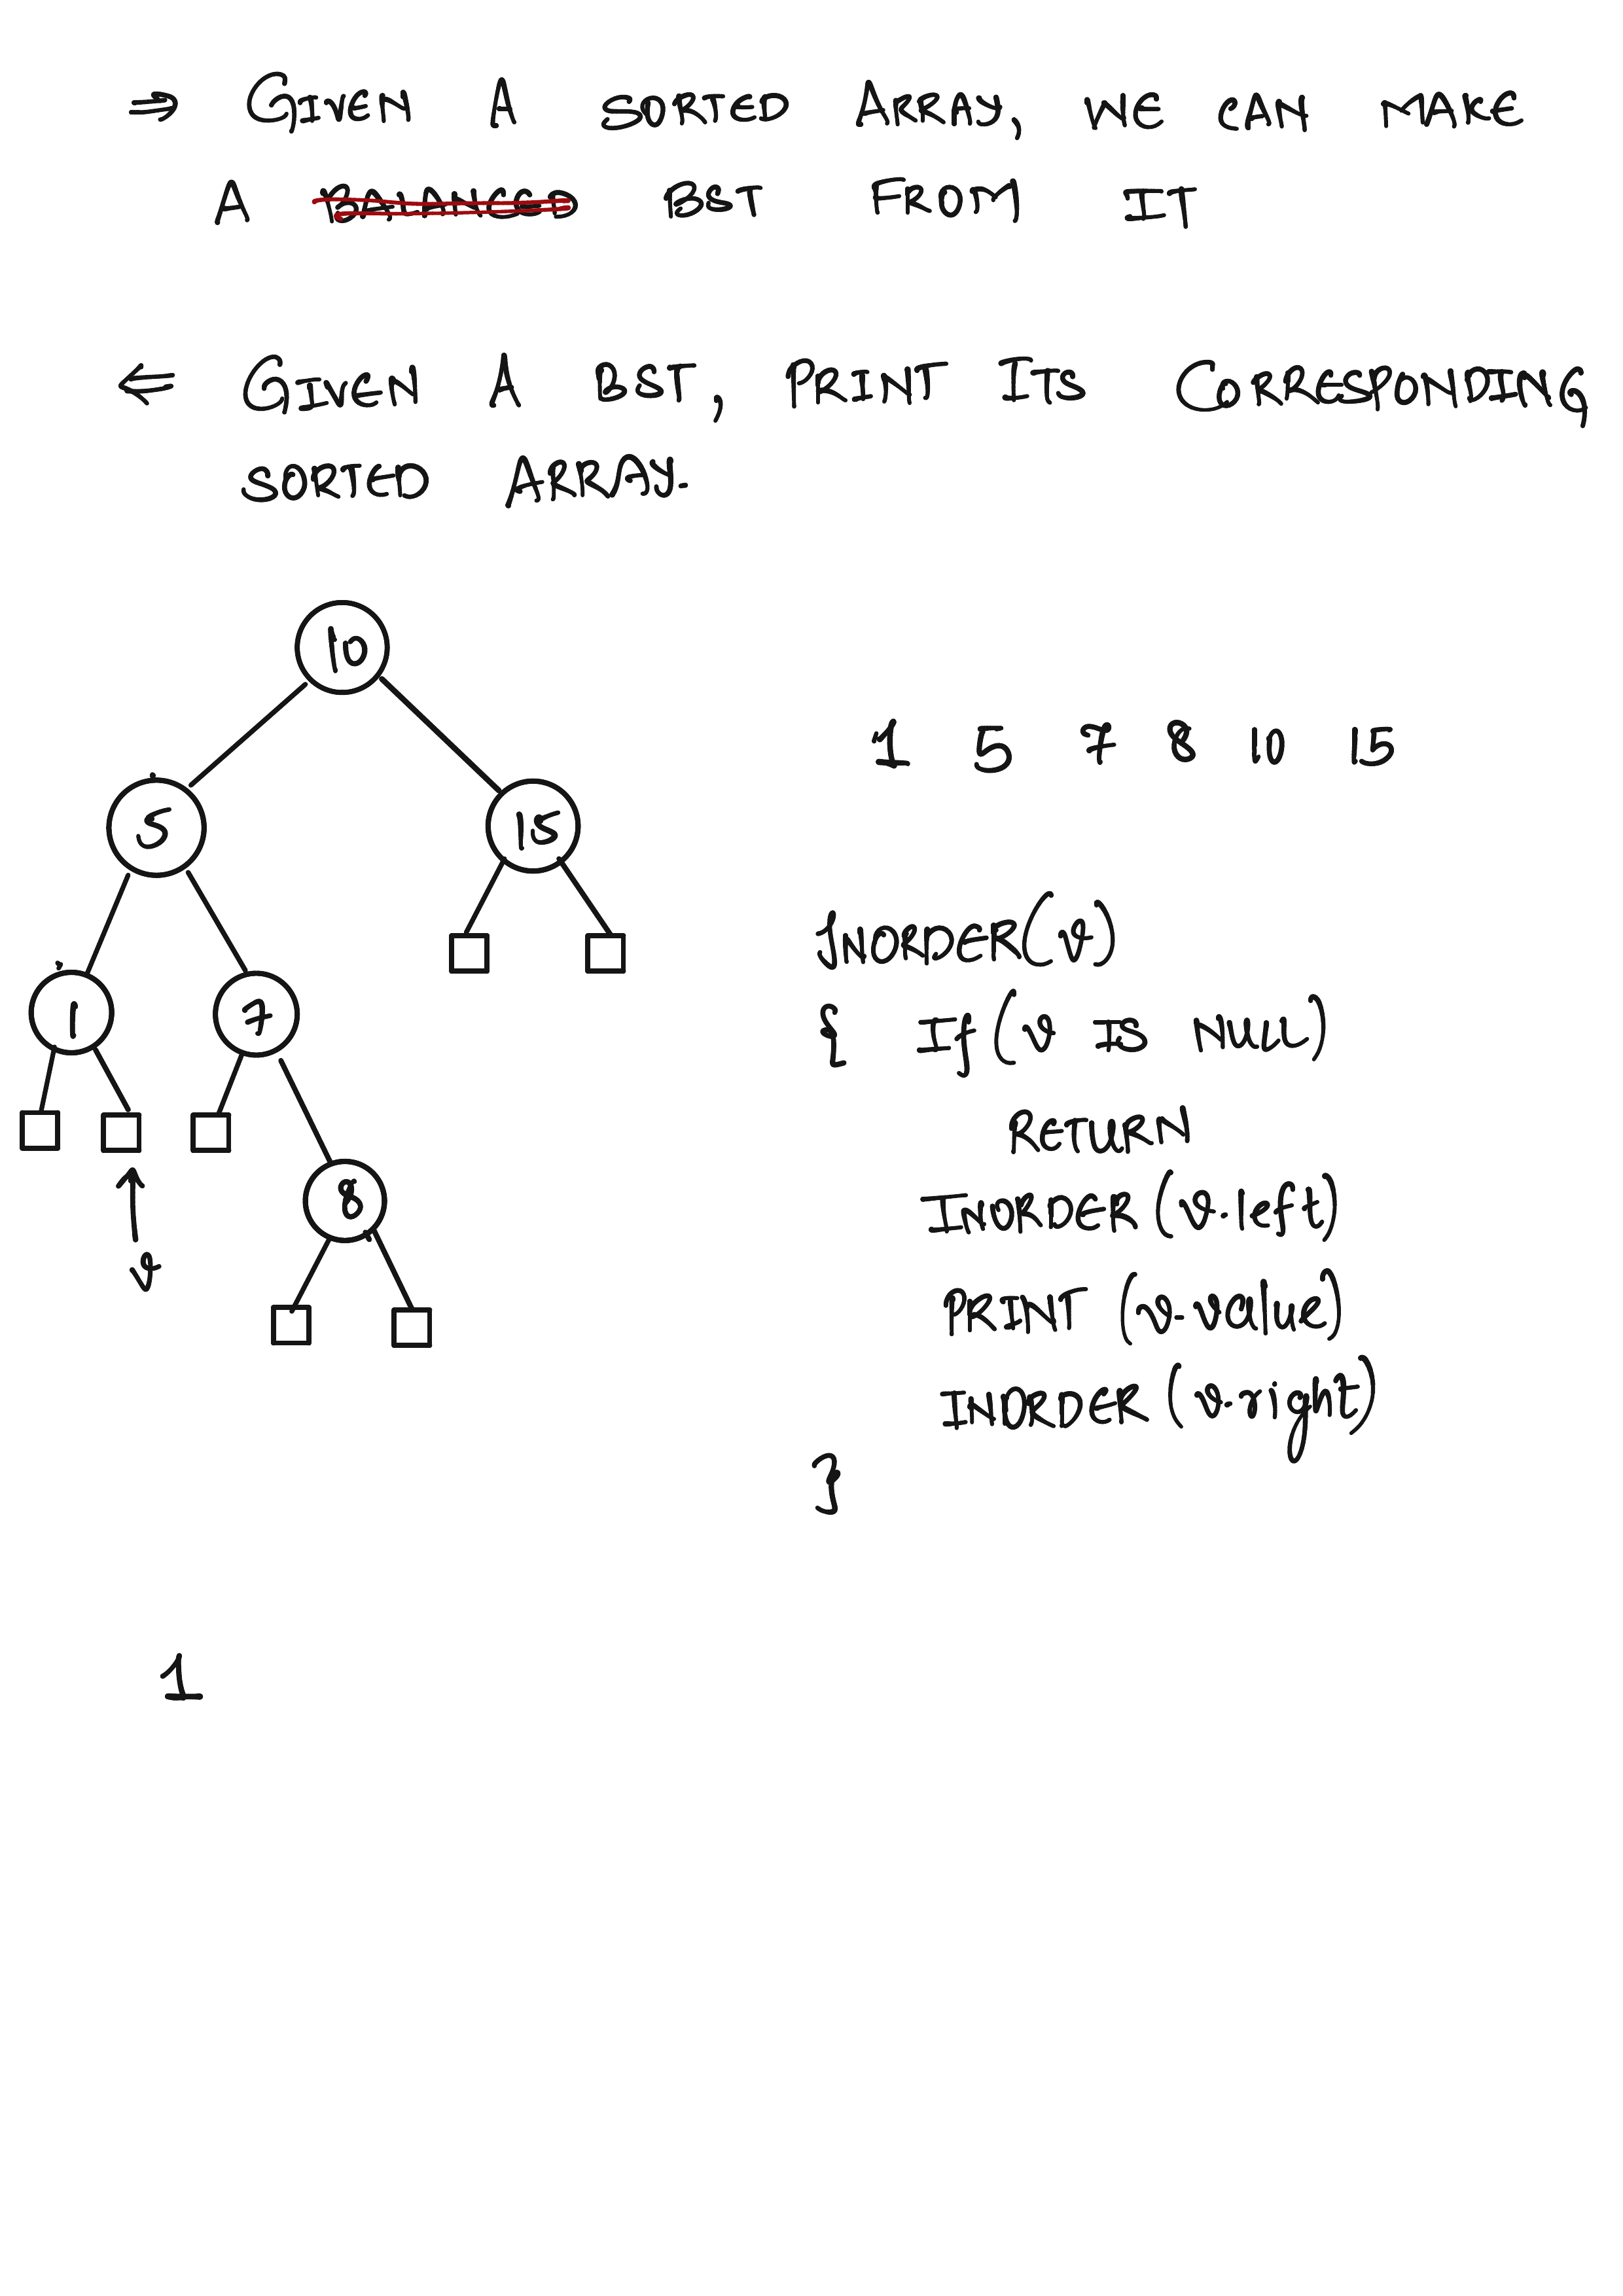 ⇒ GIVEN A SORTED ARRAY, WE CAN MAKE
A BALANCED BST FROM IT
⇐ GIVEN A BST, PRINT ITS CORRESPONDING
SORTED ARRAY.
10
5 15
1 7
8
v
1 5 7 8 10 15
INORDER(v)
{ If (v IS NULL)
RETURN
INORDER (v.left)
PRINT (v.value)
INORDER (v.right)
}
1